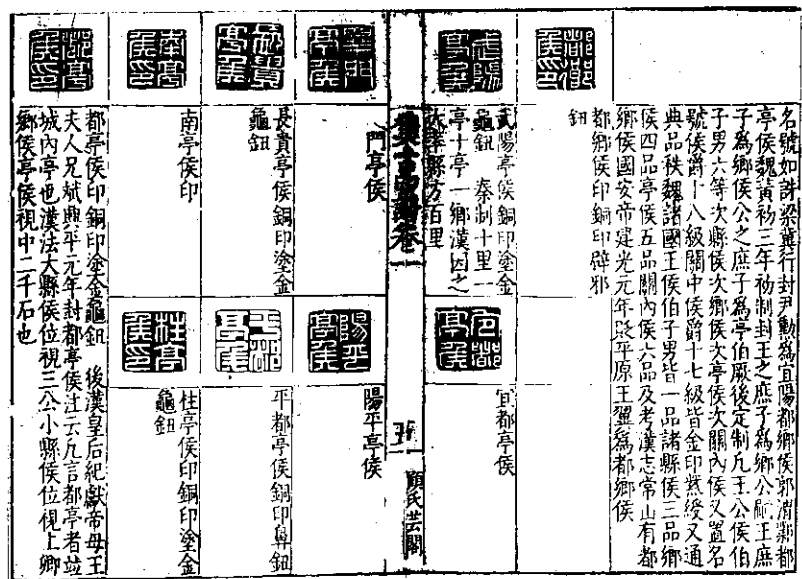 名號如誅梁冀行封尹勳爲宜陽都鄉侯郭渭鄴都
亭侯魏黃初三年初制封王之庶子爲鄉公嗣王庶
子爲鄉侯公之庶子爲亭伯厥後定制凡王公侯伯
子男六等次縣侯次鄉侯次亭侯次關內侯又置名
號侯爵十八級關中侯爵十七級皆金印紫綬又通
典品秩魏諸國王侯伯子男皆一品諸縣侯三品鄉
侯四品亭侯五品關內侯六品及考漢志常山有都
鄉侯國安帝建光元年貶平原王翼爲都鄉侯
都鄉侯印
都鄉侯印銅印辟邪
鈕
武陽亭侯
武陽亭侯銅印塗金
龜鈕 秦制十里一
亭十亭一鄉漢因之
大率縣方百里
宜都亭侯
宜都亭侯
集古印譜卷二
五
顧氏芸閣
門亭侯
陽平亭侯
陽平亭侯
長貴亭侯
長貴亭侯銅印塗金
龜鈕
平都亭侯
平都亭侯銅印鼻鈕
南亭侯印
南亭侯印
柱亭侯印
柱亭侯印銅印塗金
龜鈕
都亭侯印
都亭侯印銅印塗金龜鈕 後漢皇后紀獻帝母王
夫人兄斌興平元年封都亭侯注云凡言都亭者並
城內亭也漢法大縣侯位視三公小縣侯位視上卿
鄉侯亭侯視中二千石也